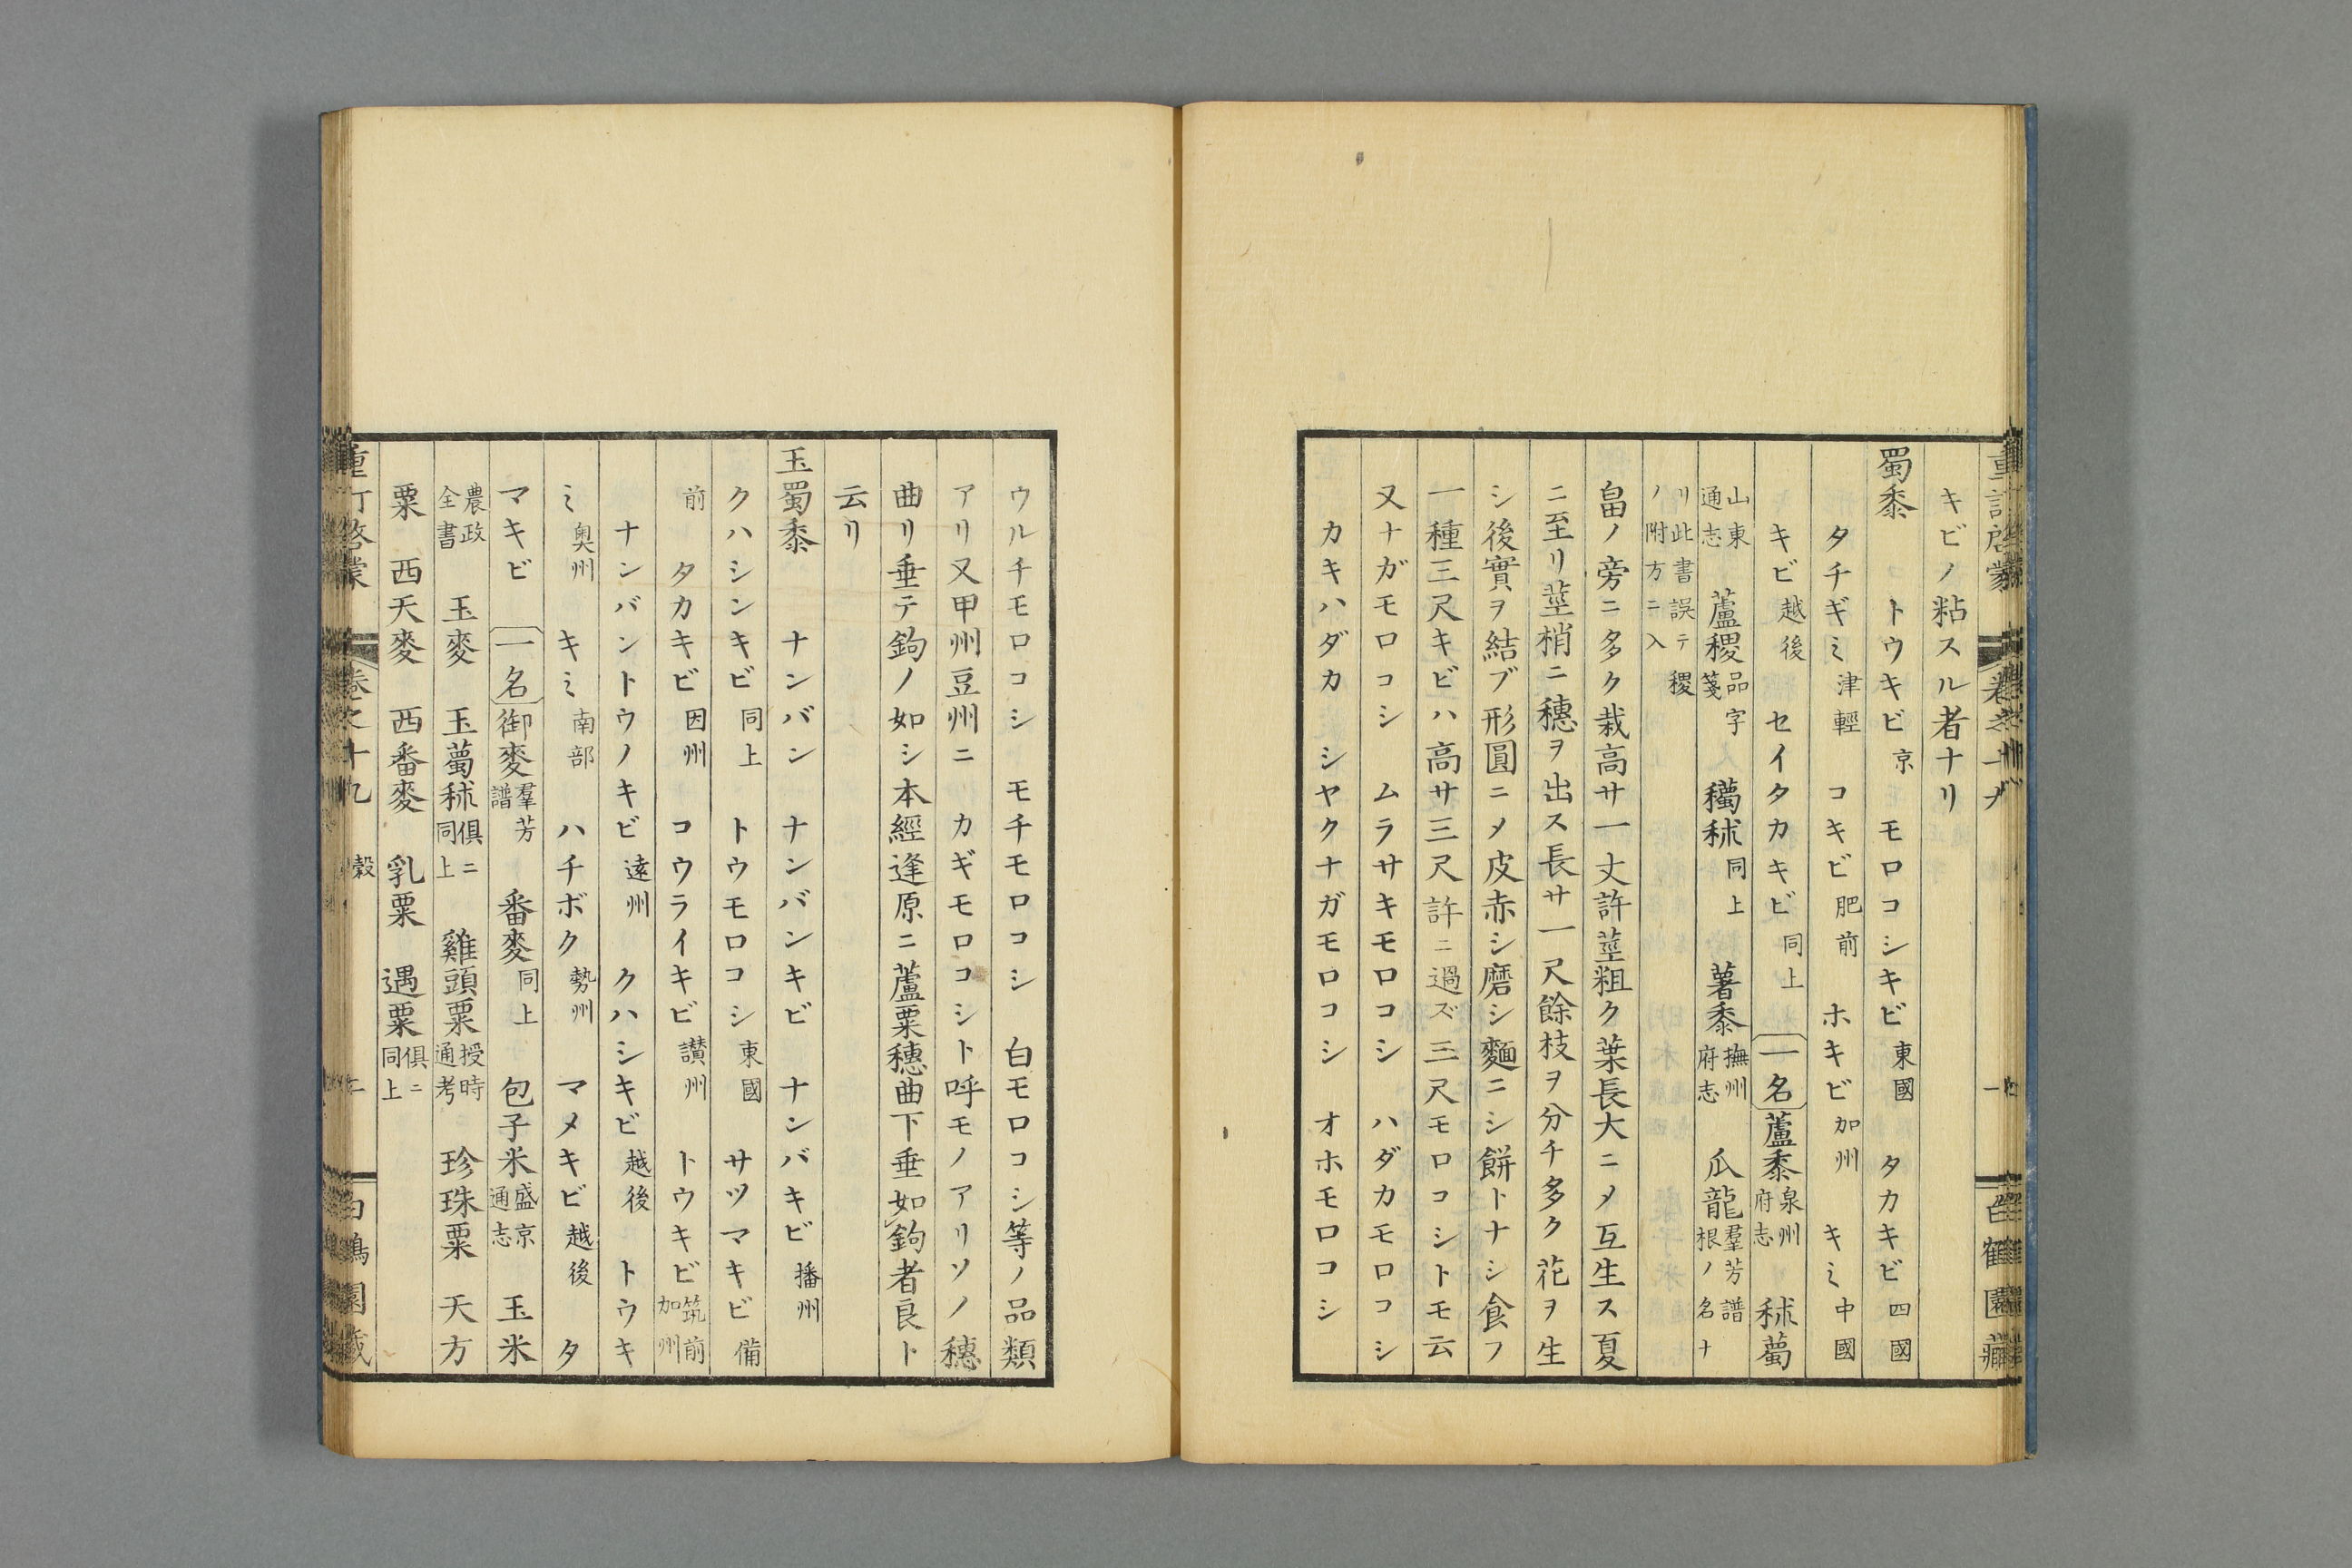 キビノ粘スル者ナリ
蜀黍 トウキビ京 モロコシキビ東國 タカキビ四國
タチギミ津輕 コキビ肥前 ホキビ加州 キミ中國
キビ越後 セイタカキビ同上 一名蘆黍泉州府志 秫薥
山東通志 蘆稷品字箋 穱秫同上 薯黍撫州府志 瓜龍羣芳譜根ノ名ナ
リ此書誤テ稷ノ附方ニ入
畠ノ旁ニ多ク栽高サ一丈許莖粗ク葉長大ニメ互生ス夏
ニ至リ莖梢ニ穗ヲ出ス長サ一尺餘枝ヲ分チ多ク花ヲ生
シ後實ヲ結ブ形圓ニメ皮赤シ磨シ麵ニシ餅トナシ食フ
一種三尺キビハ高サ三尺許ニ過ズ三尺モロコシトモ云
又ナガモロコシ ムラサキモロコシ ハダカモロコシ
カキハダカ シヤクナガモロコシ オホモロコシ
ウルチモロコシ モチモロコシ 白モロコシ等ノ品類
アリ又甲州豆州ニカギモロコシト呼モノアリソノ穗
曲リ垂テ鉤ノ如シ本經逢原ニ蘆粟穗曲下垂如鉤者良ト
云リ
玉蜀黍 ナンバン ナンバンキビ ナンバキビ播州
クハシンキビ同上 トウモロコシ東國 サツマキビ備
前 タカキビ因州 コウライキビ讃州 トウキビ筑前加州
ナンバントウノキビ遠州 クハシキビ越後 トウキ
ミ奥州 キミ南部 ハチボク勢州 マメキビ越後 タ
マキビ 一名御麥羣芳譜 番麥同上 包子米盛京通志 玉米
農政全書 玉麥 玉薥秫俱ニ同上 雞頭粟授時通考 珍珠粟 天方
粟 西天麥 西番麥 乳粟 遇粟俱ニ同上
卷之十九 穀